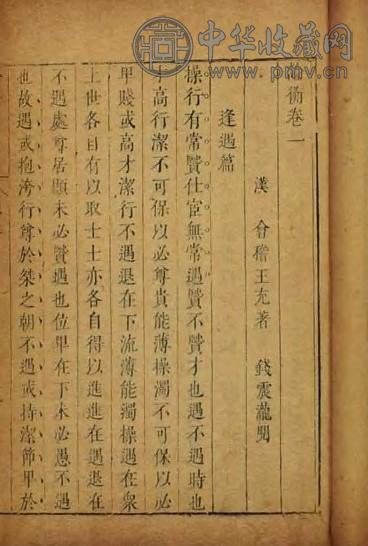 中华收藏网
www.pmv.cn
衡卷一
漢 會稽王充著 錢震瀧閱
逢遇篇
操行有常賢仕宦無常遇賢不賢才也遇不遇時也
才高行潔不可保以必尊貴能薄操濁不可保以必
卑賤或高才潔行不遇退在下流薄能濁操遇在衆
上世各自有以取士士亦各自得以進進在遇退在
不遇處尊居顯未必賢遇也位卑在下未必愚不遇
也故遇或抱洿行尊於桀之朝不遇或持潔節卑於